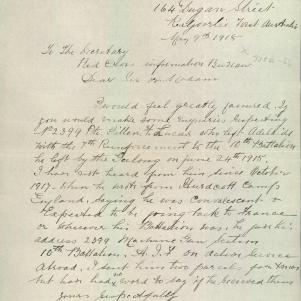 164 Dugan Street
Kalgoorlie West Australia
May 9th 1918
To The Secretary
Red Cross information Bureau
Dear Sir or Madam
I would feel greatly favoured if
you would make some Enquiries respecting
No 2399 Pte who left Adelaide
with the 7th Reinforcement to the 10th Battalion
he left by the Geelong on June 24th 1915.
I have not heard from him since October
1917. When he wrote from Hurdcott Camp
England, saying he was convalescent &
Expected to be going back to France
or wherever his Battalion was, he put his
address 2399 Machine Gun Section
10th Battalion. A.I.F. on Active Service
Abroad. I sent him two parcels for Xmas
but have had no word to say if he received them
yours respectfully